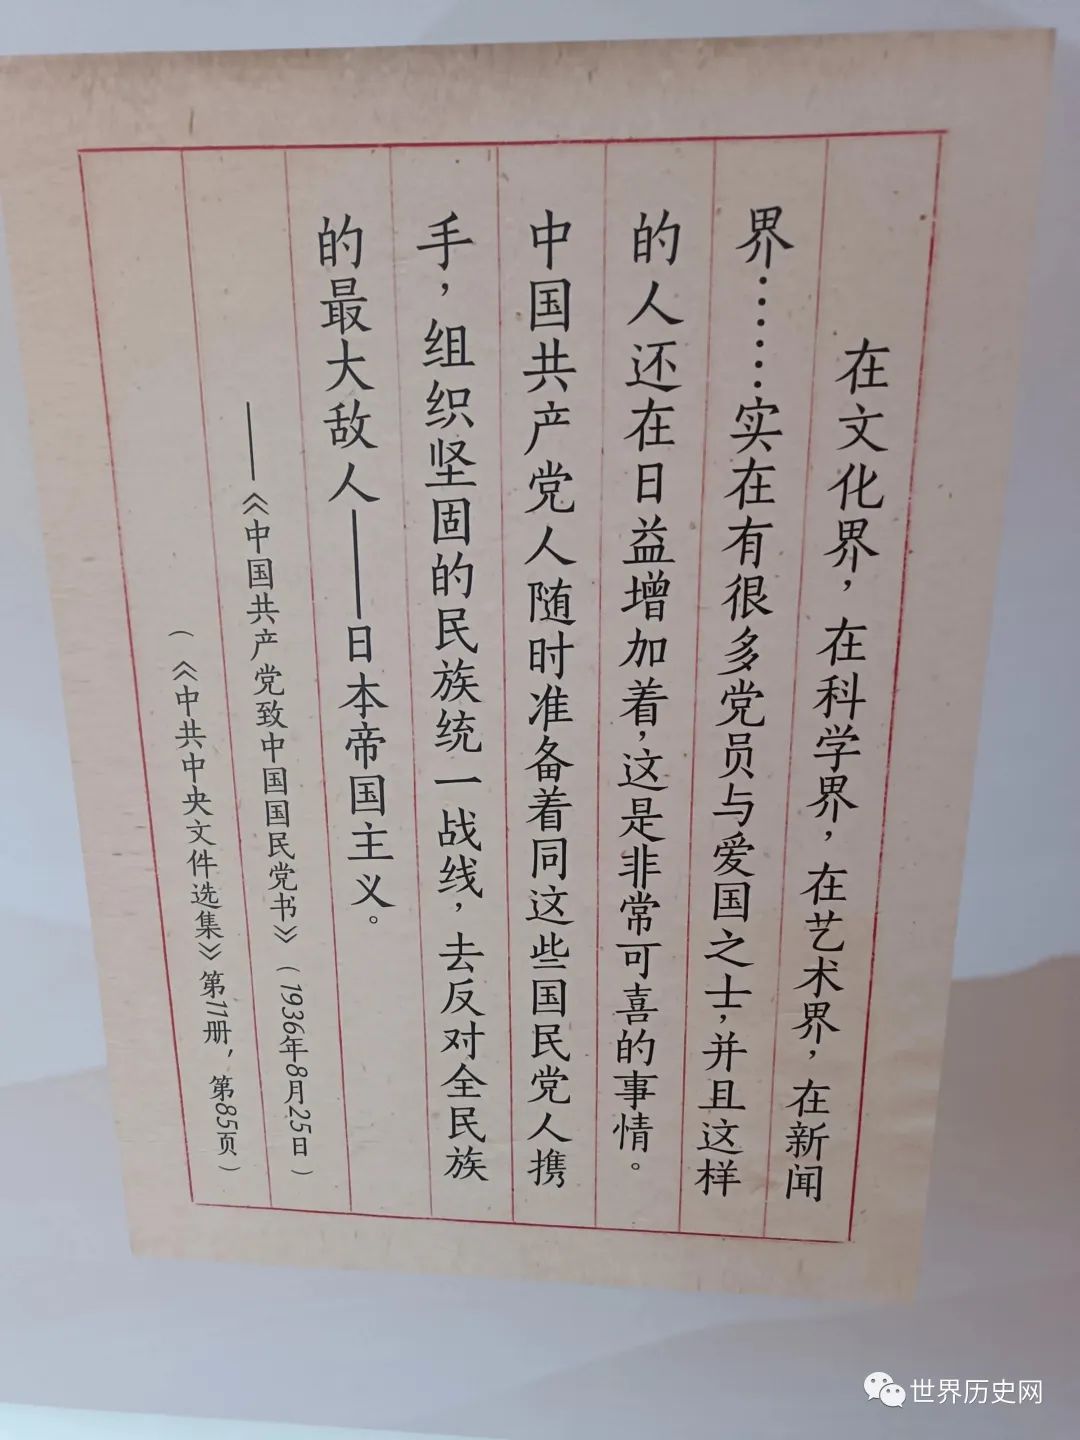 在文化界，在科学界，在艺术界，在新闻
界……实在有很多党员与爱国之士，并且这样
的人还在日益增加着，这是非常可喜的事情。
中国共产党人随时准备着同这些国民党人携
手，组织坚固的民族统一战线，去反对全民族
的最大敌人——日本帝国主义。
——《中国共产党致中国国民党书》（1936年8月25日）
（《中共中央文件选集》第11册，第85页）
世界历史网